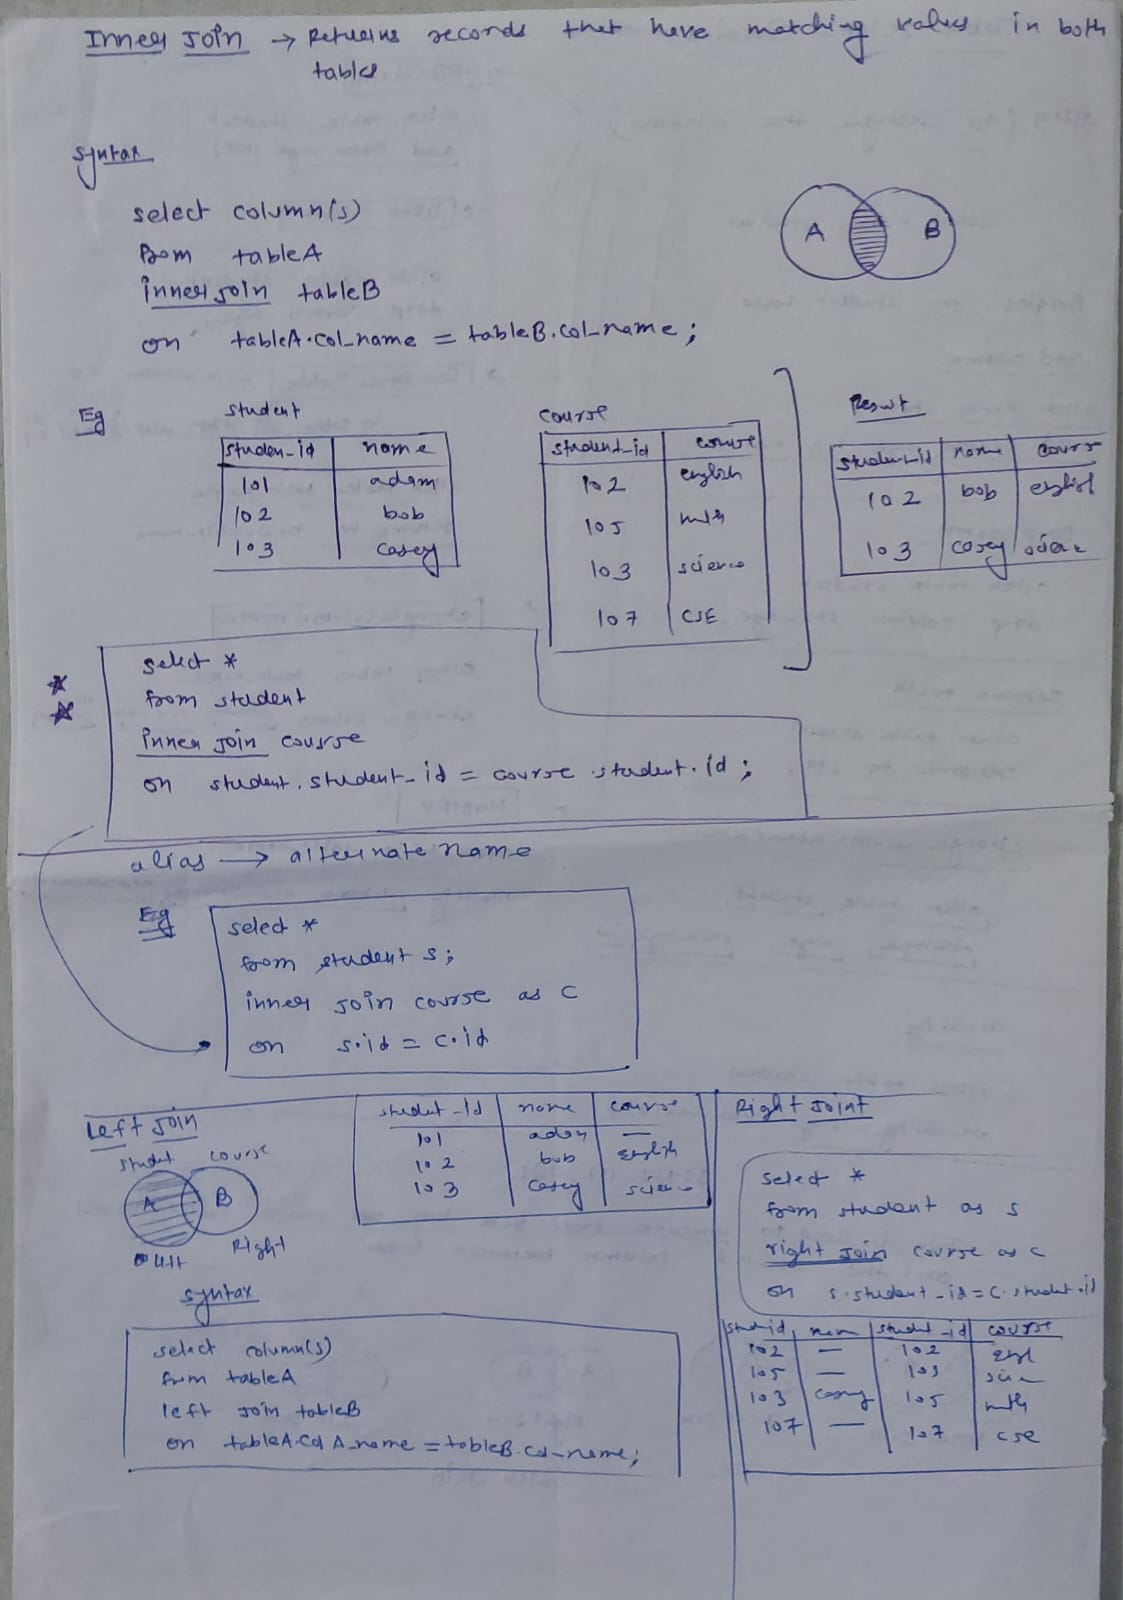 Inner Join → Returns records that have matching values in both
tables
Syntax
select column(s)
from tableA
inner join tableB
on tableA.col_name = tableB.col_name;
A B
Eg
student
studen_id name
101 adam
102 bob
103 casey
course
student_id course
102 english
105 math
103 science
107 CSE
Result
student_id name course
102 bob english
103 casey science
select *
from student
inner join course
on student.student_id = course.student.id;
alias → alternate name
Eg
select *
from student s;
inner join course as c
on s.id = c.id
Left Join
student course
A B
left Right
student_id name course
101 adam —
102 bob english
103 casey science
syntax
select column(s)
from tableA
left join tableB
on tableA.col A_name = tableB.col_name;
Right Joint
select *
from student as s
right join course as c
on s.student_id = c.student.id
studid nam student_id course
102 — 102 engl
105 — 103 scien
103 casey 105 mth
107 — 107 cse